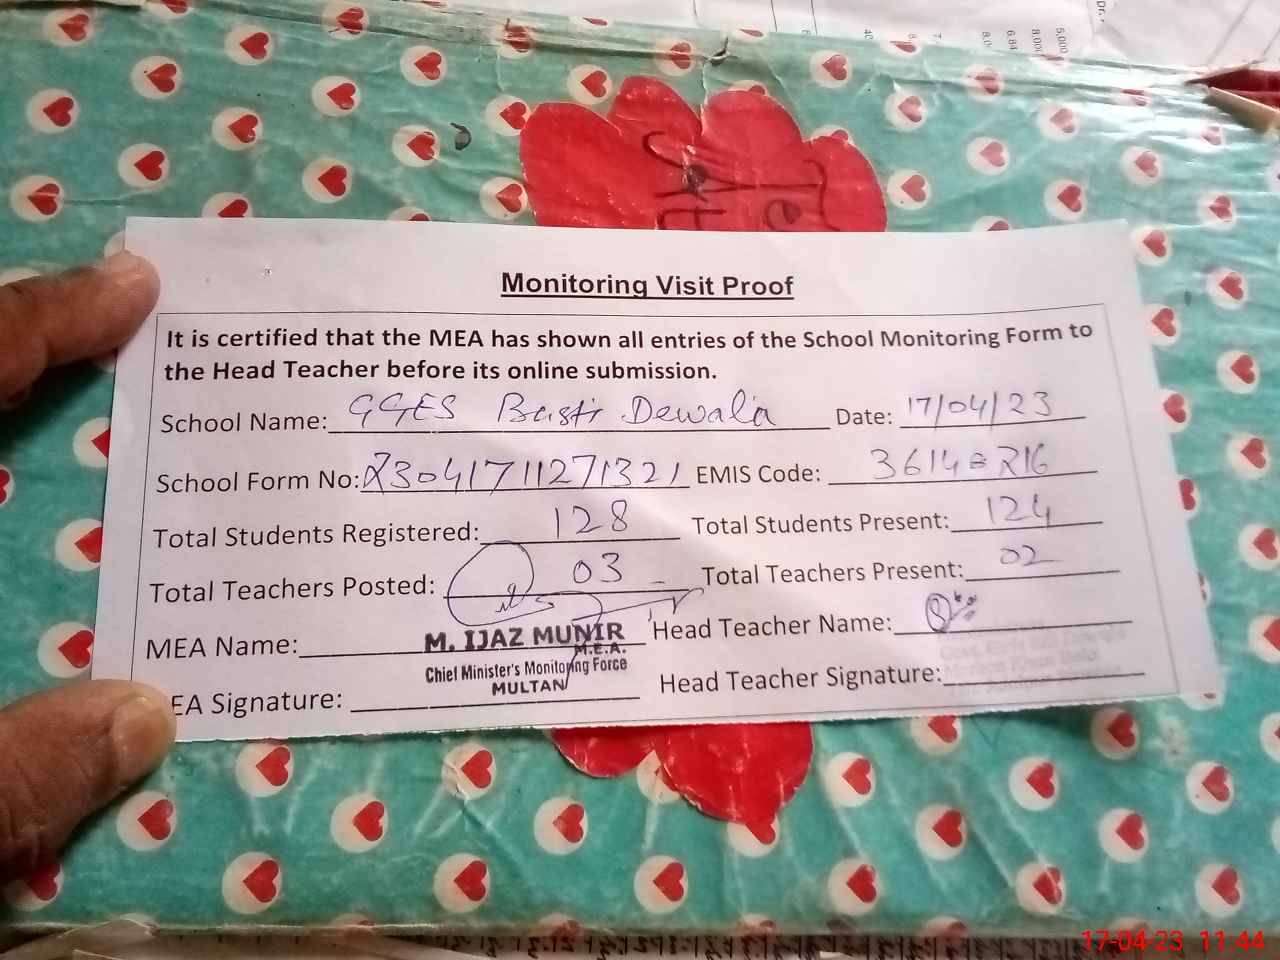 Monitoring Visit Proof
It is certified that the MEA has shown all entries of the School Monitoring Form to
the Head Teacher before its online submission.
School Name: GGES Basti Dewala Date: 17/04/23
School Form No: 23041711271321 EMIS Code:
Total Students Registered: 128 Total Students Present: 124
Total Teachers Posted: 03 Total Teachers Present: 02
MEA Name: M. IJAZ MUNIR Head Teacher Name:
M.E.A.
Chief Minister's Monitoring Force
MULTAN
EA Signature: Head Teacher Signature:
17-04-23 11:44